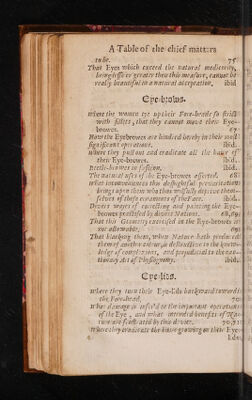 A Table of the chief matters
tube. 75
That Eyes which exceed the natural mediocrity,
being lesse or greater then this measure, cannot be
really beautiful in a natural acceptation. ibid
Eye-brows.
Where the women tye up their Fore-heads so strait
with fillets, that they cannot move their Eye-
browes. 67
How the Eyebrowes are hindred hereby in their most
significant operations. Ibid.
Where they pull out and eradicate all the haire of
their Eye-browes. Ibid.
Beetle-browes in fashion. Ibid.
The natural uses of the Eye-browes asserted. 68
What inconveniences this despightful
brings upon them who thus wilfully deprive them-
selves of these ornaments of the Face. Ibid.
Divers wayes of encreasing and painting the Eye-
browes practised by divers Nations. 68,69
That this Geometry exercised in the Eye-browes is
not allowable. 69
That blacking them, when Nature hath produced
them of another colour, is destructive to the know-
ledge of complexions, and prejudicial to the cau-
tionary Art of Physiognomy. ibid.
Eye-lids.
Where they turn their Eye-lids backward toward
the Fore-head. 70
What damage is inferred to the important operations
of the Eye, and what intended benefits of Na-
ture are frustrated by this device. 70,71
Where they eradicate the haires growing on their Eye-
Lids